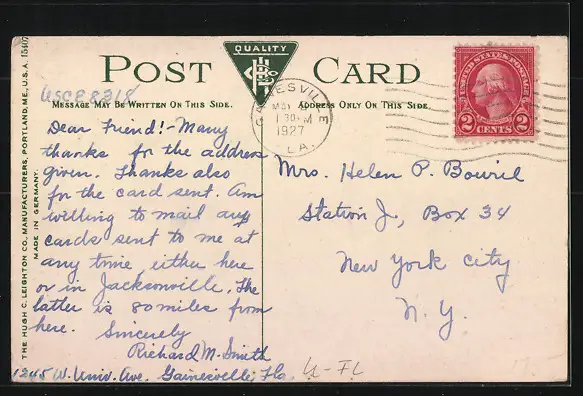 QUALITY
POST CARD
USCE8318
MESSAGE MAY BE WRITTEN ON THIS SIDE.
ADDRESS ONLY ON THIS SIDE.
THE HUGH C. LEIGHTON CO., MANUFACTURERS, PORTLAND, ME., U.S.A.
MADE IN GERMANY.
Dear Friend! - Many
thanks for the address
given. Thanks also
for the card sent. Am
willing to mail any
cards sent to me at
any time, either here
or in Jacksonville. The
latter is 80 miles from
here. Sincerely
Richard M. Smith
1245 W. Univ. Ave. Gainesville, Fla.
GAINESVILLE
1927
LA.
UNITED STATES POSTAGE
2 CENTS 2
Mrs. Helen P. Bouril
Station J, Box 34
New York City
N. Y.
U-FL